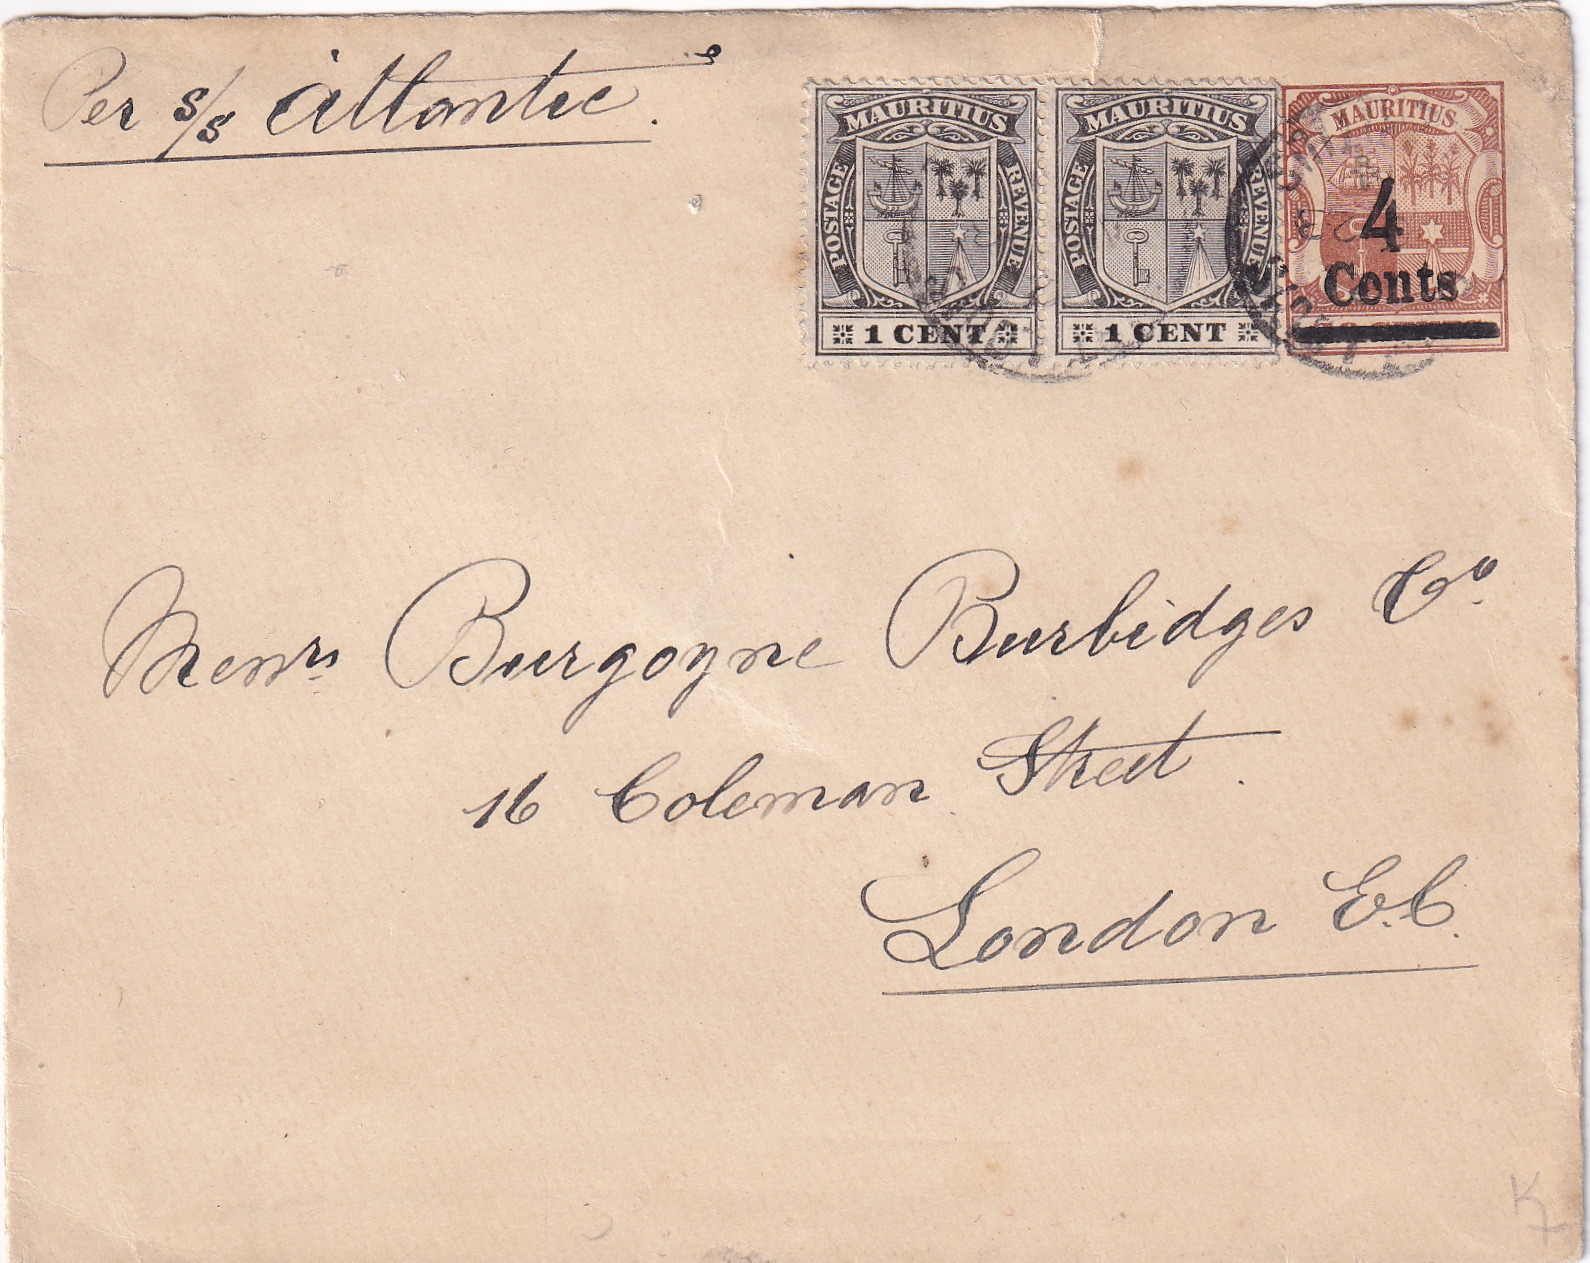 Per s/s Atlantic.
MAURITIUS
POSTAGE
REVENUE
1 CENT
MAURITIUS
POSTAGE
REVENUE
1 CENT
MAURITIUS
4
Cents
Messrs Burgoyne Burbidges Co
16 Coleman Street.
London E.C.
K